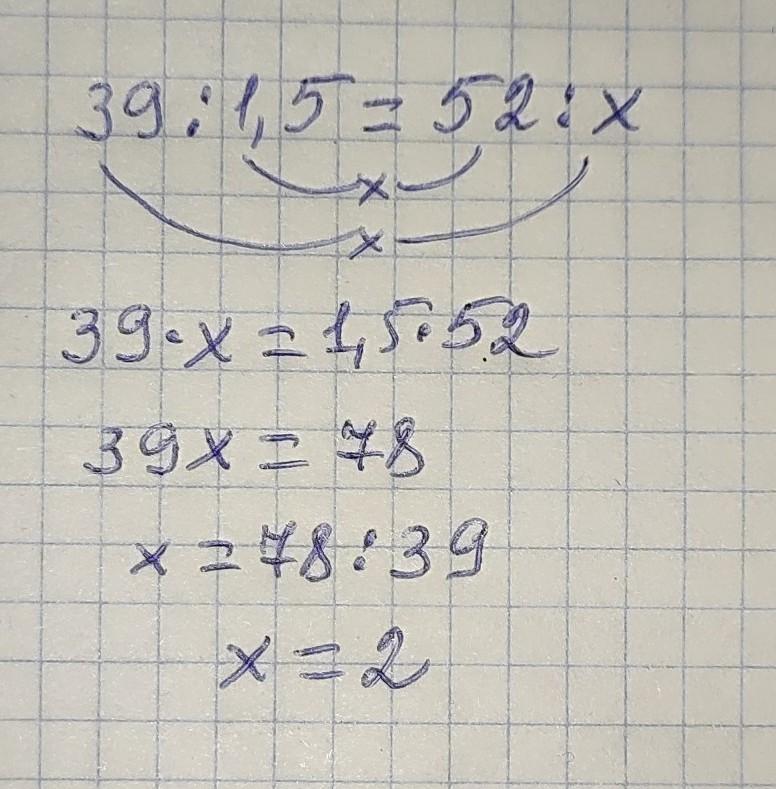 39:1,5=52:x
x
x
39·x=1,5·52
39x=78
x=78:39
x=2